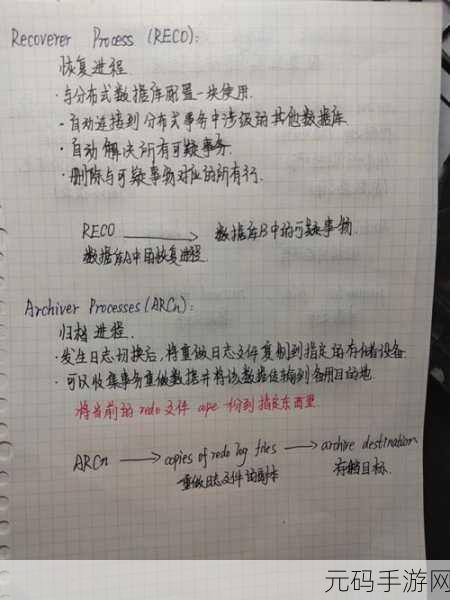 Recoverer Process (RECO):
恢复进程.
·与分布式数据库配置一块使用.
·自动连接到分布式事务中涉级的其他数据库
·自动解决所有可疑事务.
·删除与可疑事物对应的所有行.
RECO → 数据库B中的可疑事物.
数据库A中的恢复进程
Archiver Processes (ARCn):
归档进程.
·发生日志切换后,将重做日志文件复制到指定的存储设备.
·可以收集事务重做数据并将该数据传输到备用目的地.
将当前的redo文件 cope 一份到指定东西里.
ARCn → copies of redo log files → archive destination
重做日志文件的副本 存档目标.
元码手游网